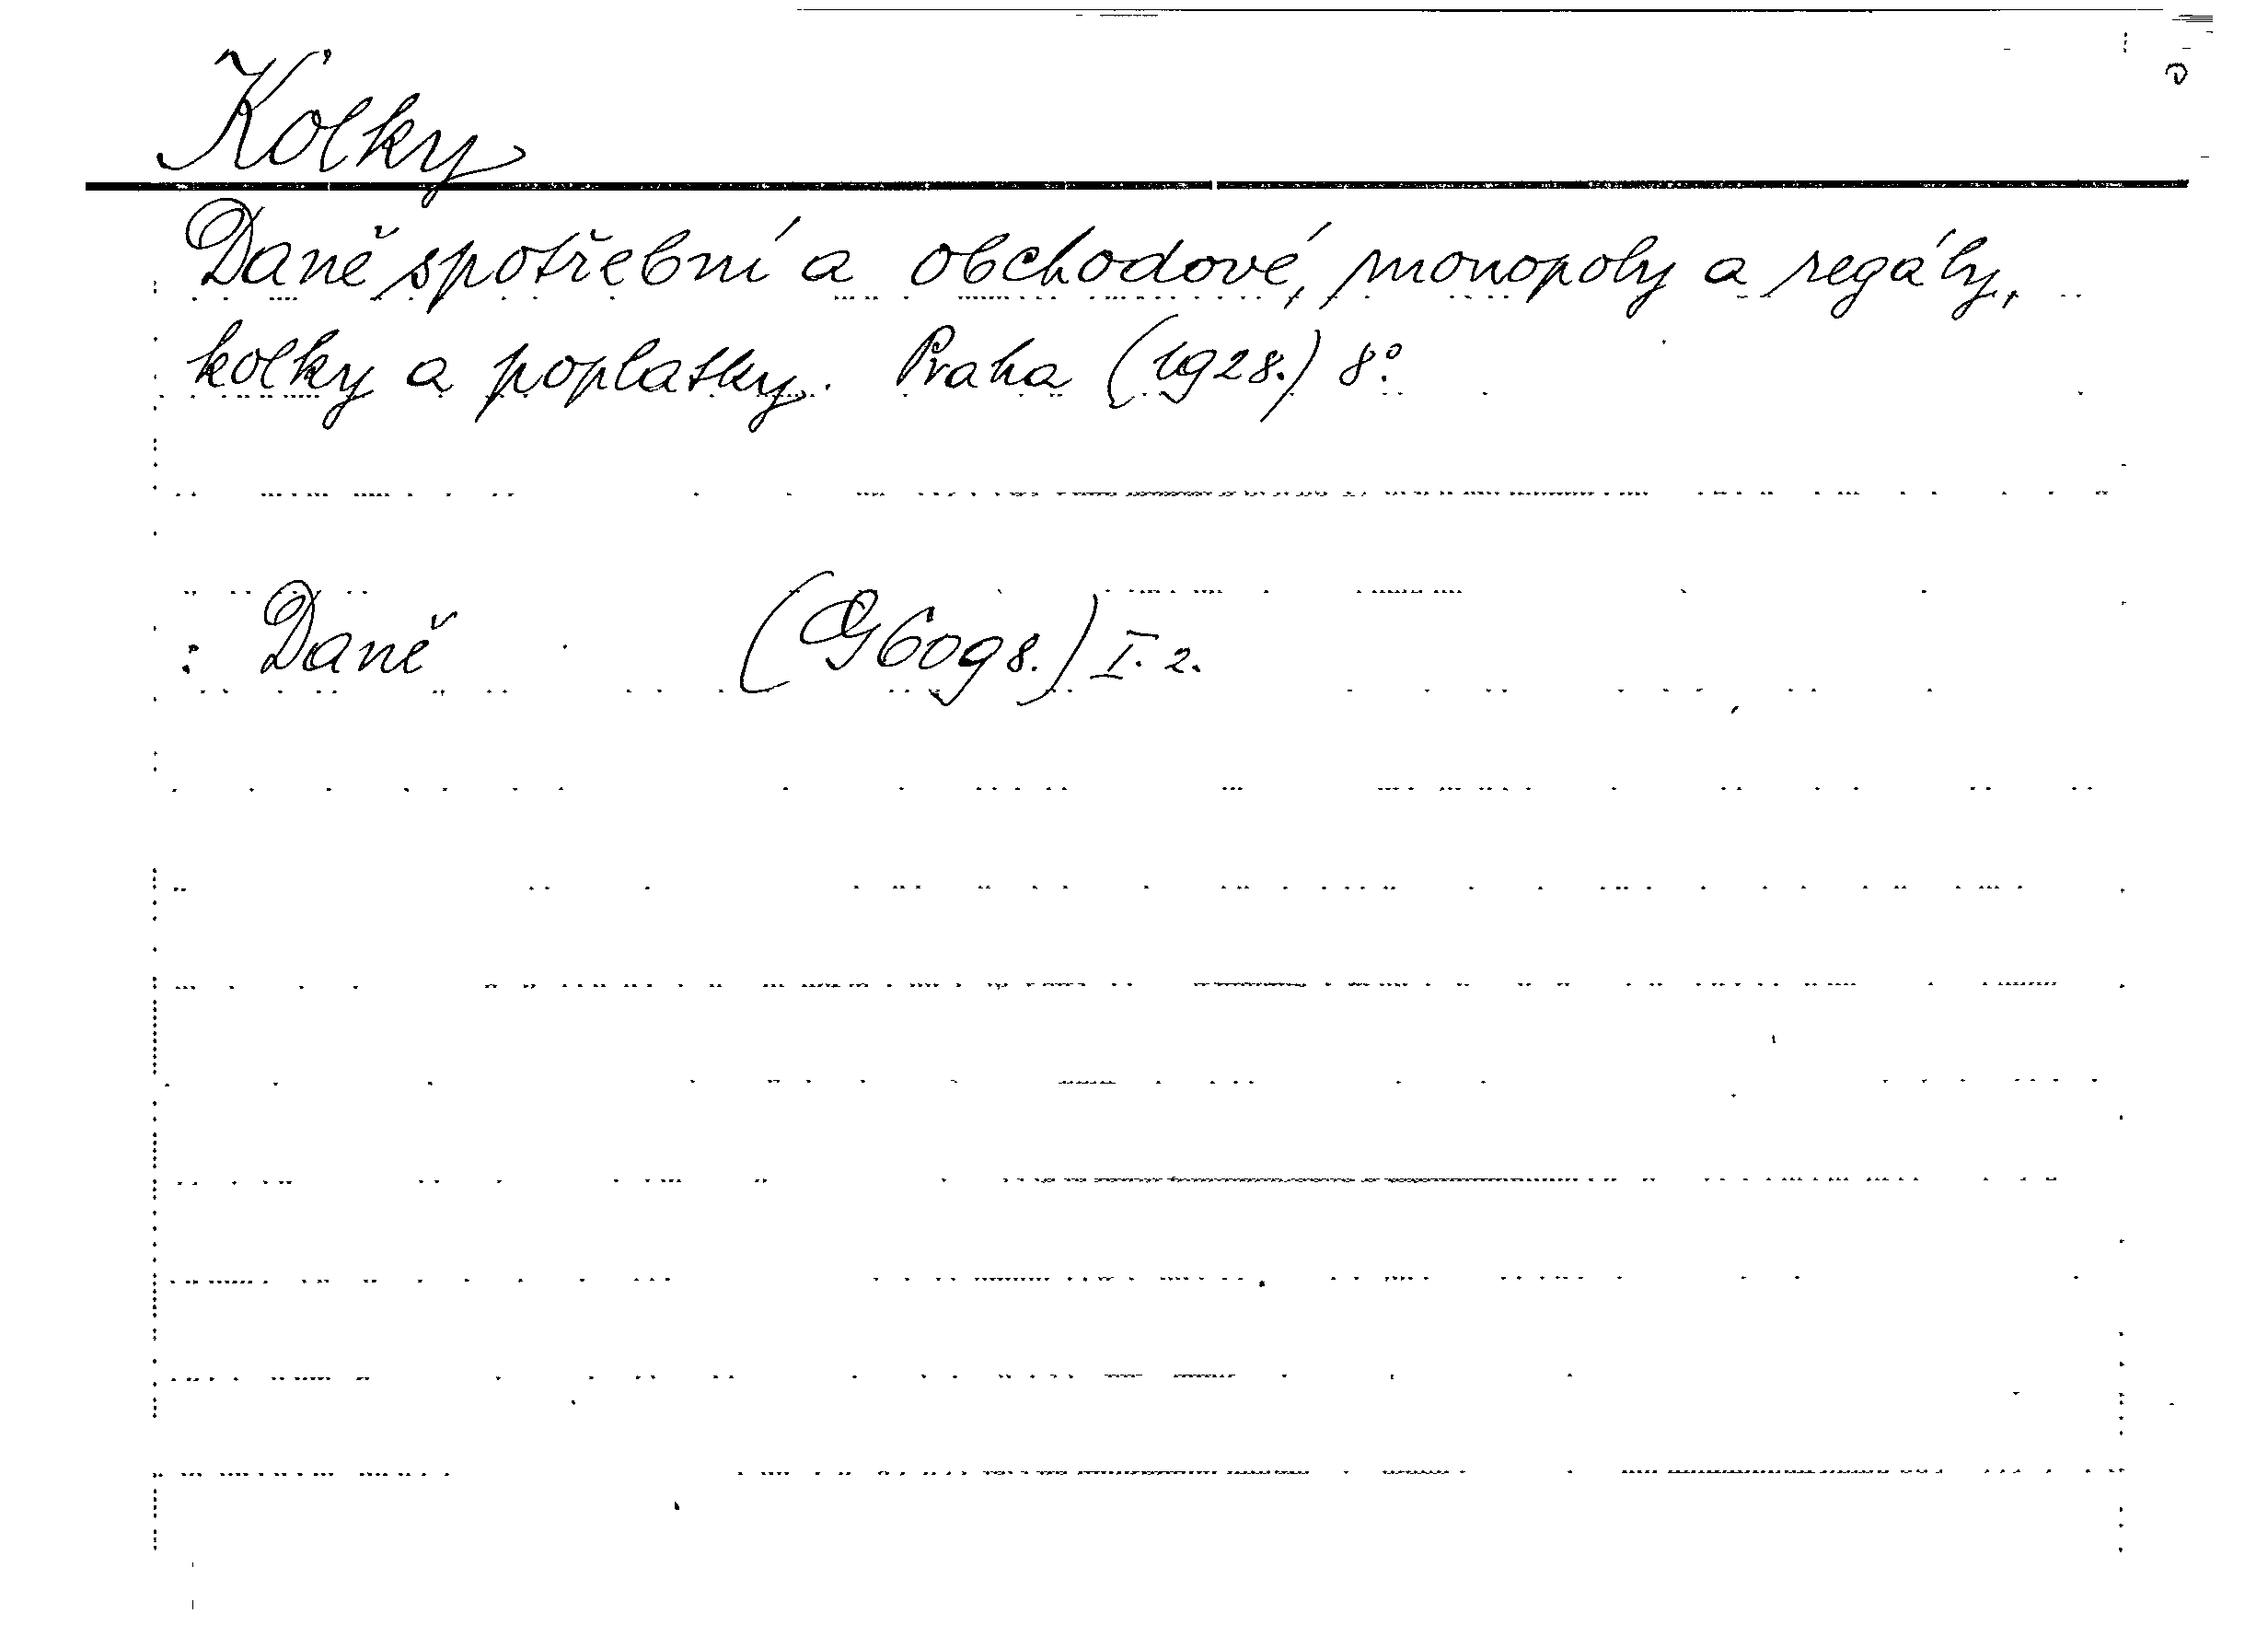 Kolky
Daně spotřební a obchodové, monopoly a regály,
kolky a poplatky. Praha (1928.) 8°.
: Daně (G 6098.) I. 2.